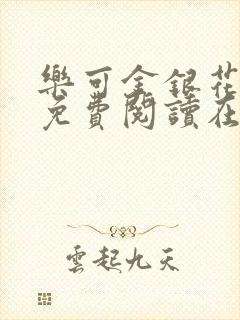 樂可金銀花
免費閱讀在
雲起九天